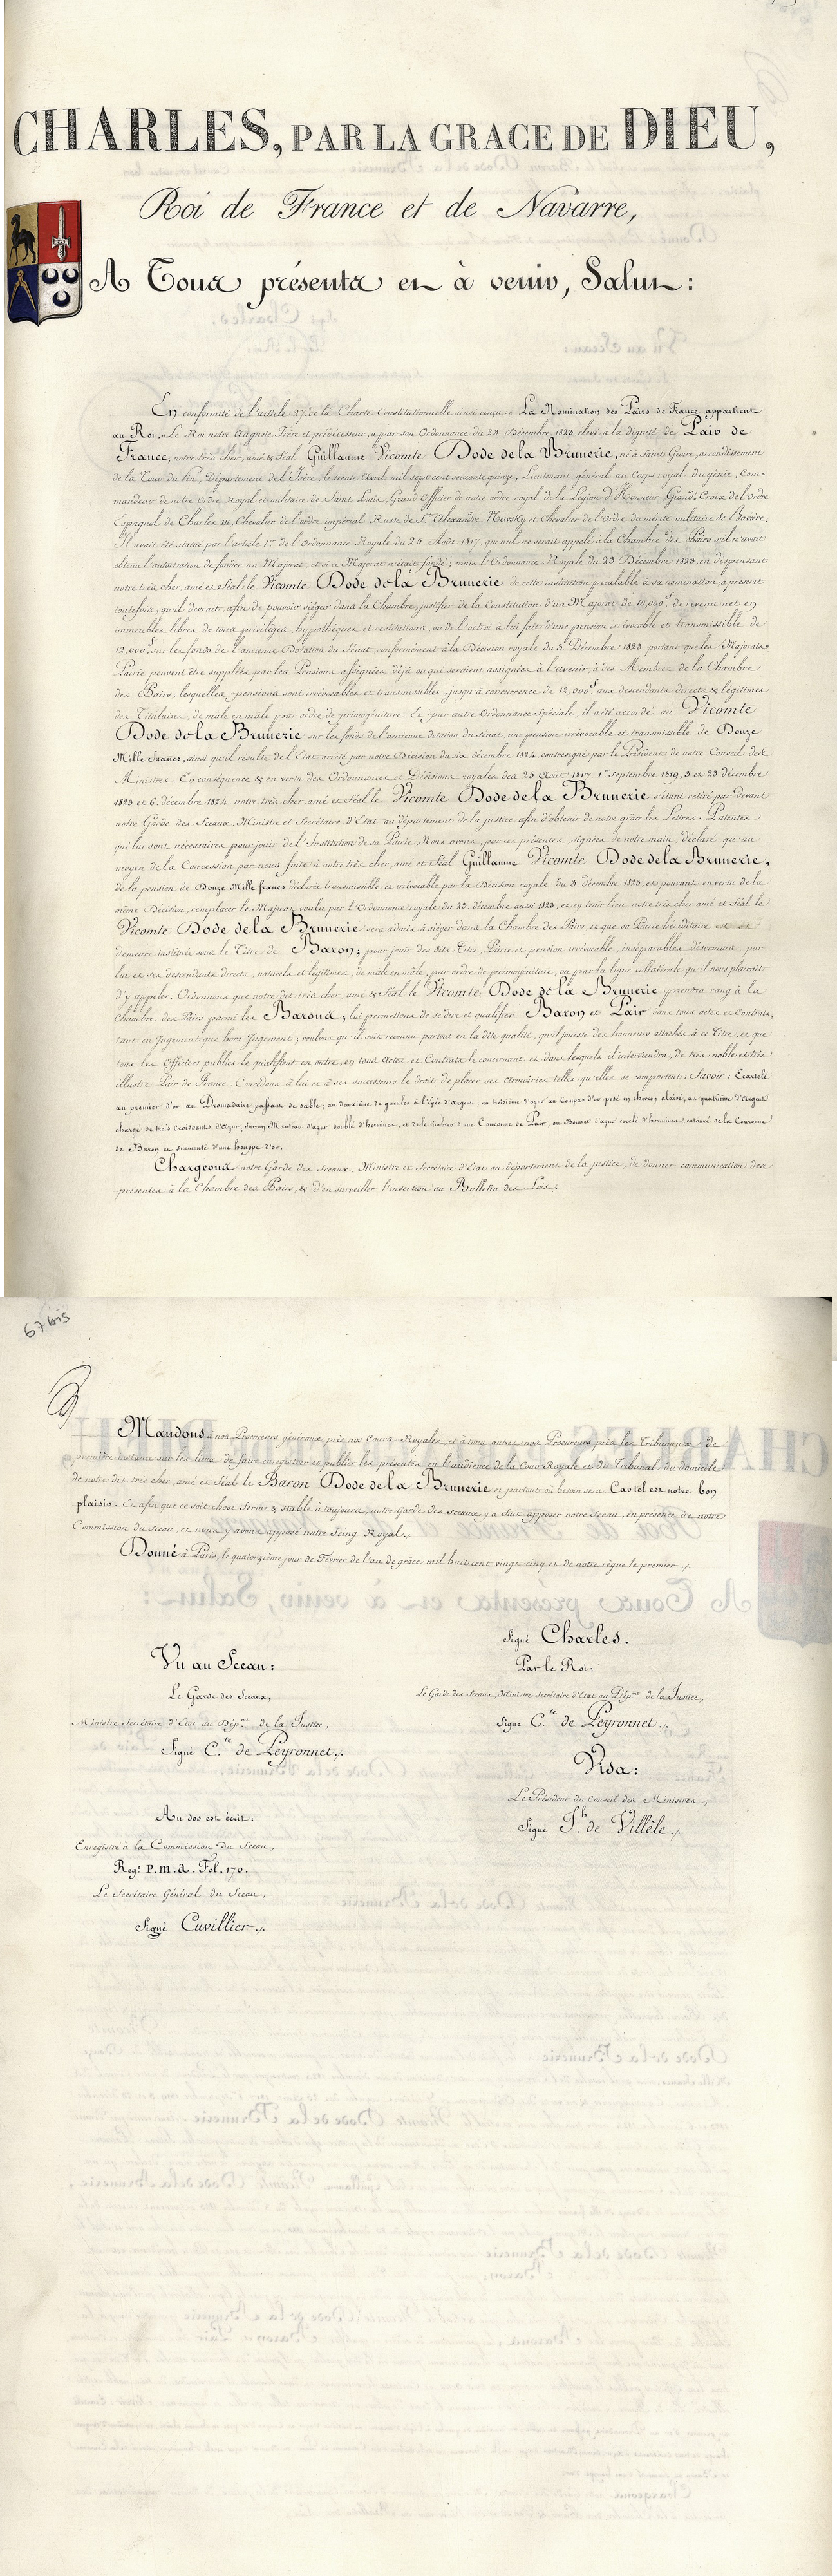 CHARLES, PAR LA GRACE DE DIEU,
Roi de France et de Navarre,
A Tous présents et à venir, Salut:
En conformité de l'article 27 de la Charte Constitutionnelle ainsi conçu « La Nomination des Pairs de France appartient
au Roi, » Le Roi notre Auguste Frère et prédécesseur, a par son Ordonnance du 23 Décembre 1823, élevé à la dignité de Pair de
France, notre très cher, amé & féal Guillaume Vicomte Dode de la Brunerie, né à Saint Geoire, arrondissement
de la Tour du Pin, Département de l'Isère, le trente Avril mil sept cent soixante quinze, Lieutenant général au Corps royal du génie, Com-
mandeur de notre Ordre Royal et militaire de Saint Louis, Grand Officier de notre ordre royal de la Légion d'Honneur, Grand'Croix de l'Ordre
Espagnol de Charles III, Chevalier de l'ordre impérial Russe de St. Alexandre Newsky et Chevalier de l'Ordre du mérite militaire de Bavière.
Il avait été statué par l'article 1er de l'Ordonnance Royale du 25 Août 1817, que nul ne serait appelé à la Chambre des Pairs s'il n'avait
obtenu l'autorisation de fonder un Majorat, et si ce Majorat n'était fondé; mais l'Ordonnance Royale du 23 Décembre 1823, en dispensant
notre très cher, amé et féal le Vicomte Dode de la Brunerie de cette institution préalable à sa nomination, a prescrit
toutefois, qu'il devrait, afin de pouvoir siéger dans la Chambre, justifier de la Constitution d'un Majorat de 10,000f de revenu net en
immeubles libres de tous privilèges, hypothèques et restitutions, ou de l'octroi à lui fait d'une pension irrévocable et transmissible de
12,000f sur les fonds de l'ancienne Dotation du Sénat conformément à la Décision royale du 3 Décembre 1823 portant que les Majorats-
Pairie peuvent être suppléés par les Pensions assignées déjà ou qui seraient assignées à l'avenir, à des Membres de la Chambre
des Pairs; lesquelles pensions sont irrévocables et transmissibles jusqu'à concurrence de 12,000f aux descendants directs & légitimes
des Titulaires, de mâle en mâle par ordre de primogéniture. Et par autre Ordonnance Spéciale, il a été accordé au Vicomte
Dode de la Brunerie sur les fonds de l'ancienne dotation du Sénat, une pension irrévocable et transmissible de Douze
Mille Francs, ainsi qu'il résulte de l'Etat arrêté par notre Décision du six décembre 1824 contresigné par le Président de notre Conseil des
Ministres. En conséquence & en vertu des Ordonnances et Décisions royales des 25 Août 1817, 1er Septembre 1819, 3 et 23 décembre
1823 et 6 décembre 1824, notre très cher amé et féal le Vicomte Dode de la Brunerie s'étant retiré par devant
notre Garde des Sceaux, Ministre et Secrétaire d'Etat au département de la justice afin d'obtenir de notre grâce les Lettres-Patentes
qui lui sont nécessaires pour jouir de l'Institution de sa Pairie, Nous avons, par ces présentes, signées de notre main, déclaré qu'au
moyen de la Concession par nous faite à notre très cher, amé et féal Guillaume Vicomte Dode de la Brunerie,
de la pension de Douze Mille francs déclarée transmissible et irrévocable par la Décision royale du 3 décembre 1823, et pouvant en vertu de la
même Décision, remplacer le Majorat voulu par l'Ordonnance royale du 23 décembre aussi 1823, et en tenir lieu notre très cher amé et féal le
Vicomte Dode de la Brunerie sera admis à siéger dans la Chambre des Pairs, et que sa Pairie héréditaire est et
demeure instituée sous le Titre de Baron; pour jouir des dits Titre, Pairie et pension irrévocable, inséparables désormais, par
lui et ses descendants directs, naturels et légitimes, de mâle en mâle, par ordre de primogéniture, ou par la ligne collatérale qu'il nous plairait
d'y appeler. Ordonnons que notre dit très cher, amé & féal le Vicomte Dode de la Brunerie prendra rang à la
Chambre des Pairs parmi les Barons; lui permettons de se dire et qualifier Baron et Pair dans tous actes et Contrats,
tant en Jugement que hors Jugement; voulons qu'il soit reconnu partout en la dite qualité, qu'il jouisse des honneurs attachés à ce Titre, et que
tous les Officiers publics le qualifient en outre, en tous Actes et Contrats le concernant et dans lesquels il interviendra, de très noble et très
illustre Pair de France. Concédons à lui et à ses successeurs le droit de placer ses Armoiries telles qu'elles se comportent; Savoir: Ecartelé
au premier d'or au Dromadaire passant de sable; au deuxième de gueules à l'épée d'argent; au troisième d'azur au Compas d'or posé en chevron alaisé, au quatrième d'Argent
chargé de trois croissants d'Azur, sur un Manteau d'azur doublé d'hermines, et de le timbrer d'une Couronne de Pair, ou Bonnet d'azur cerclé d'hermines, entouré de la Couronne
de Baron et surmonté d'une houppe d'or.
Chargeons notre Garde des Sceaux, Ministre et Secrétaire d'Etat au département de la justice, de donner communication des
présentes à la Chambre des Pairs, & d'en surveiller l'insertion au Bulletin des Lois.
67 bis
Mandons à nos Procureurs généraux près nos Cours Royales, et à tous autres nos Procureurs près les Tribunaux de
première instance sur les lieux de faire enregistrer et publier les présentes en l'audience de la Cour Royale et du Tribunal du domicile
de notre dit très cher, amé et féal le Baron Dode de la Brunerie et partout où besoin sera. Car tel est notre bon
plaisir. Et afin que ce soit chose ferme & stable à toujours, notre Garde des Sceaux y a fait apposer notre Sceau, en présence de notre
Commission du Sceau, et nous y avons apposé notre Seing Royal.
Donné à Paris, le quatorzième jour de Février de l'an de grâce mil huit cent vingt cinq et de notre règne le premier.
Signé Charles.
Par le Roi:
Le Garde des Sceaux, Ministre Secrétaire d'Etat au Dépmt de la Justice,
Signé Cte de Peyronnet.
Visa:
Le Président du Conseil des Ministres,
Signé Jh de Villèle.
Vu au Sceau:
Le Garde des Sceaux,
Ministre Secrétaire d'Etat au Dépmt de la Justice,
Signé Cte de Peyronnet.
Au dos est écrit:
Enregistré à la Commission du Sceau,
Regt P.m.a. Fol. 170.
Le Secrétaire Général du Sceau,
Signé Cuvillier.